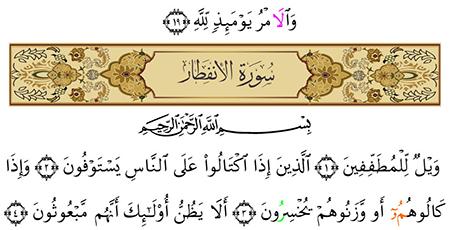 وَالَامْرُ يَوْمَئِذٍ لِلَّهِ ﴿١٩﴾
سُورَةُ الانفطار
بِسْمِ اللَّهِ الرَّحْمَٰنِ الرَّحِيمِ
وَيْلٌ لِلْمُطَفِّفِينَ ﴿١﴾ الَّذِينَ إِذَا اكْتَالُواْ عَلَى النَّاسِ يَسْتَوْفُونَ ﴿٢﴾ وَإِذَا
كَالُوهُمُۥٓ أَو وَّزَنُوهُمْ يُخْسِرُونَ ﴿٣﴾ أَلَا يَظُنُّ أُوْلَٰئِكَ أَنَّهُم مَّبْعُوثُونَ ﴿٤﴾